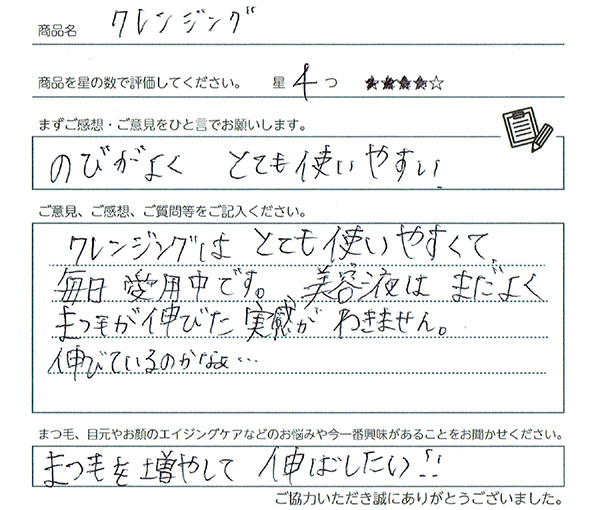 商品名 クレンジング
商品を星の数で評価してください。 星 4 つ ★★★★☆
まずご感想・ご意見をひと言でお願いします。
のびがよく とても使いやすい
ご意見、ご感想、ご質問等をご記入ください。
クレンジングは とても使いやすくて、
毎日愛用中です。 美容液は まだよく
まつ毛が伸びた実感が わきません。
伸びているのかなぁ…
まつ毛、目元やお顔のエイジングケアなどのお悩みや今一番興味があることをお聞かせください。
まつ毛を増やして 伸ばしたい!!
ご協力いただき誠にありがとうございました。